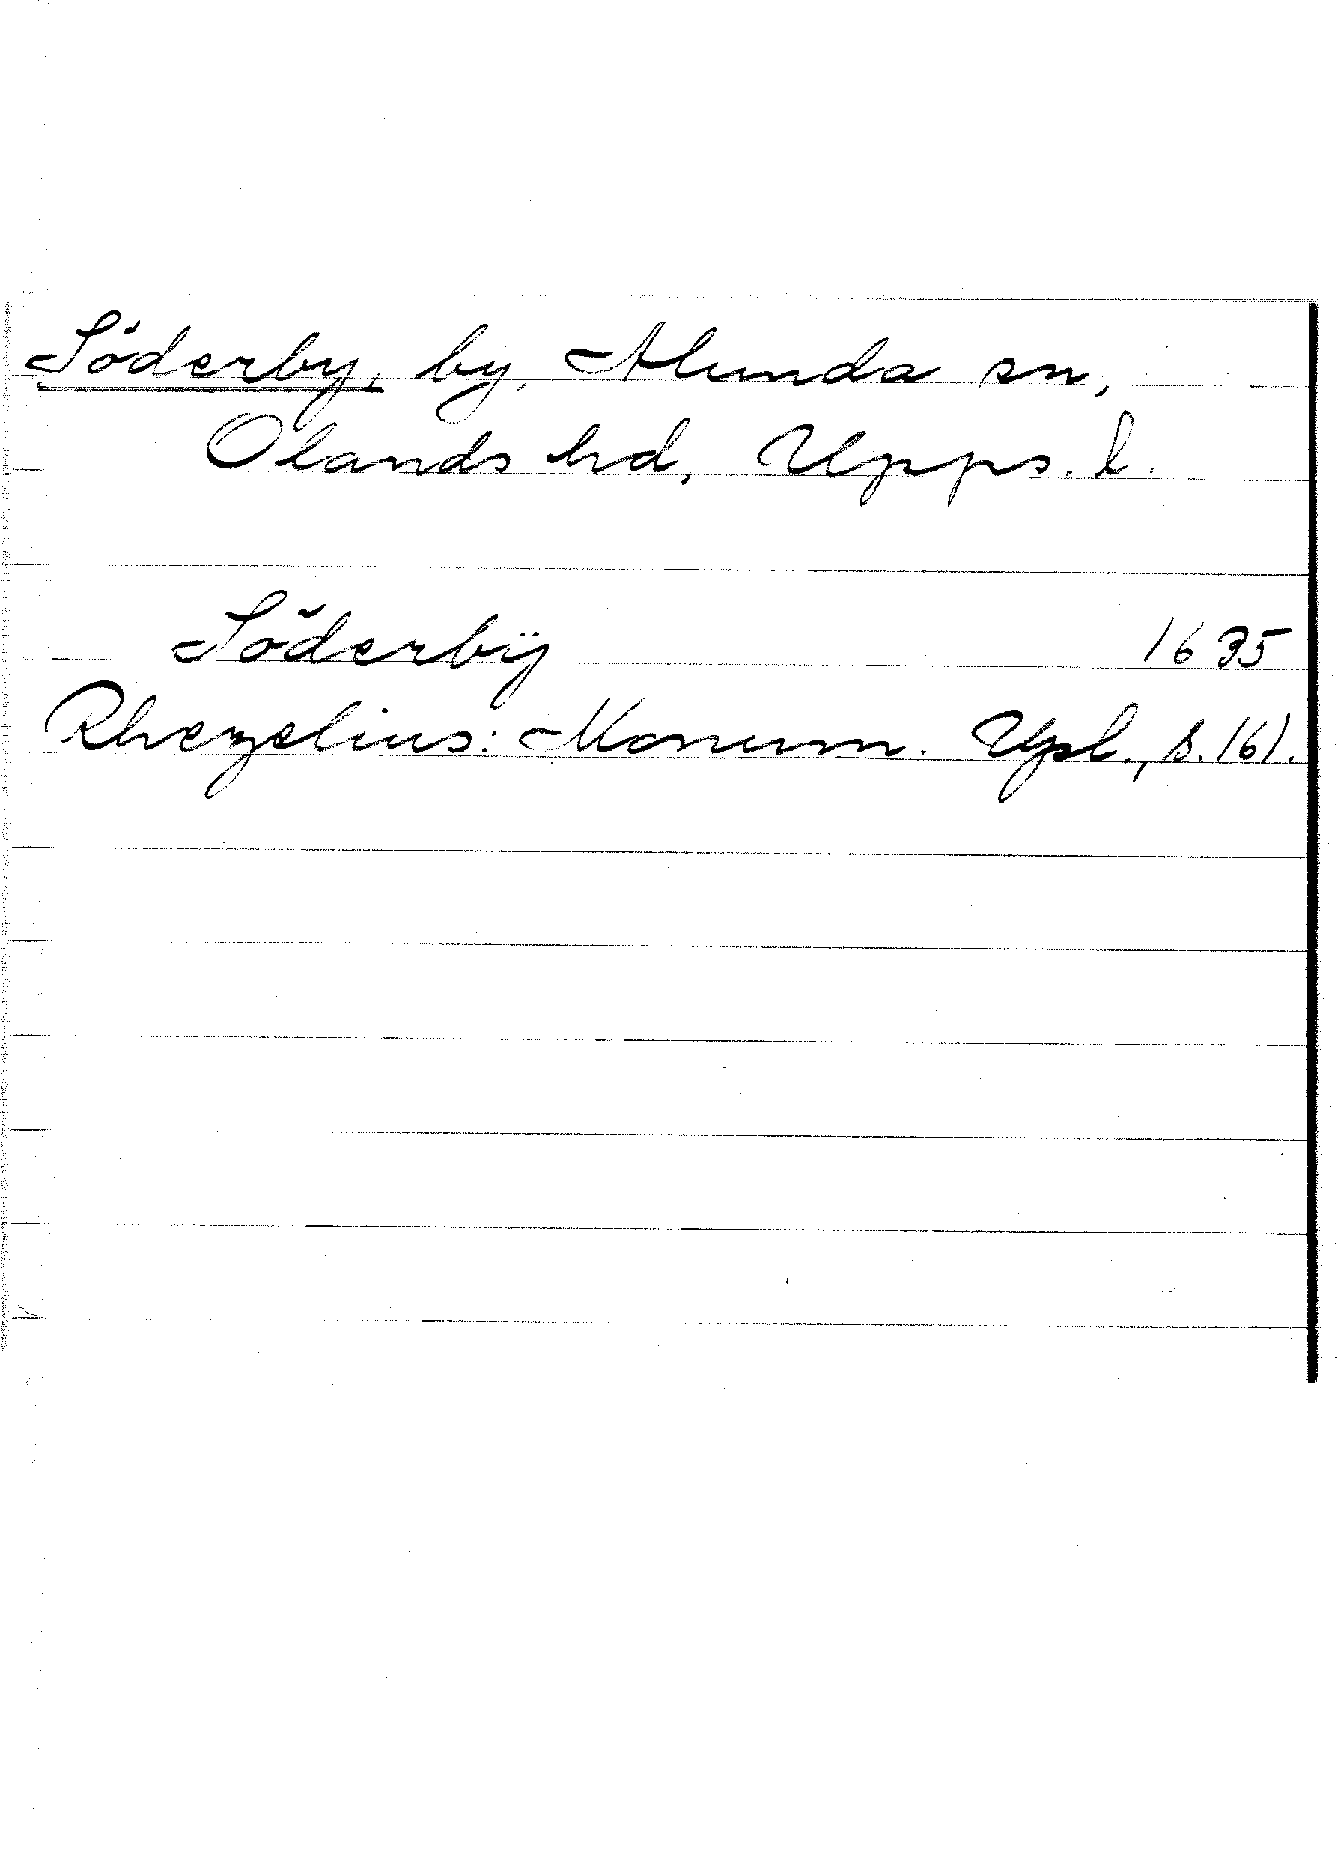 Söderby, by, Alunda sn,
Olands hd, Upps. l.
Söderbÿ 1635
Rhezelius: Monum. Upl., s. 161.